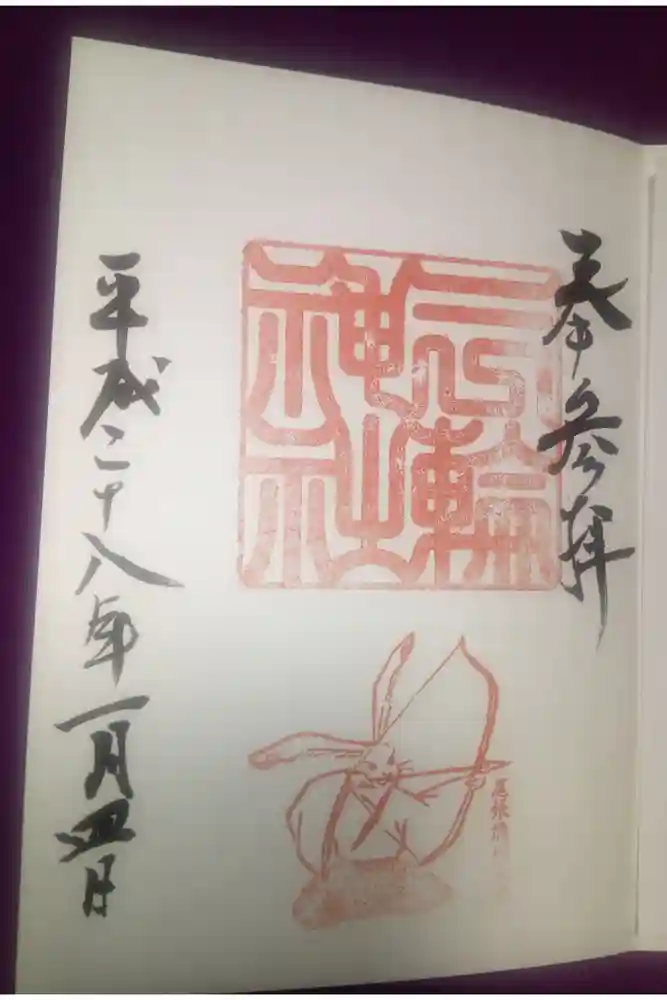 奉参拝
三輪神社
尾張
平成二十八年一月四日